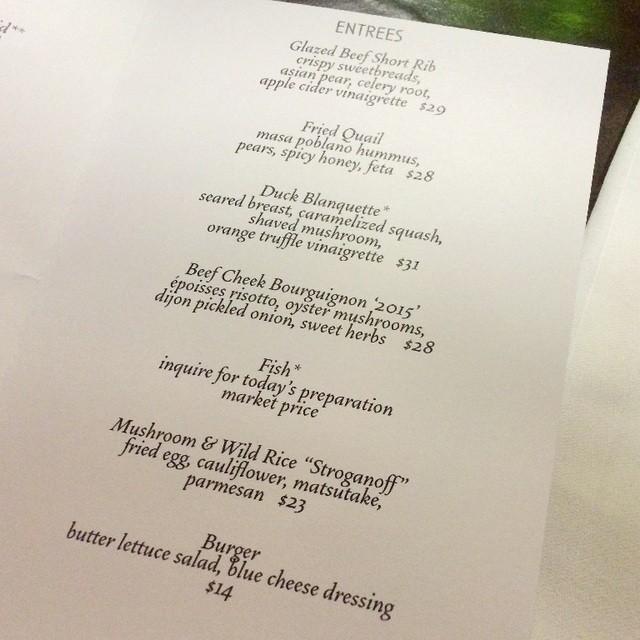 d**
ENTREES
Glazed Beef Short Rib
crispy sweetbreads,
asian pear, celery root,
apple cider vinaigrette $29
Fried Quail
masa poblano hummus,
pears, spicy honey, feta $28
Duck Blanquette*
seared breast, caramelized squash,
shaved mushroom,
orange truffle vinaigrette $31
Beef Cheek Bourguignon ‘2015’
époisses risotto, oyster mushrooms,
dijon pickled onion, sweet herbs $28
Fish*
inquire for today’s preparation
market price
Mushroom & Wild Rice “Stroganoff”
fried egg, cauliflower, matsutake,
parmesan $23
Burger
butter lettuce salad, blue cheese dressing
$14